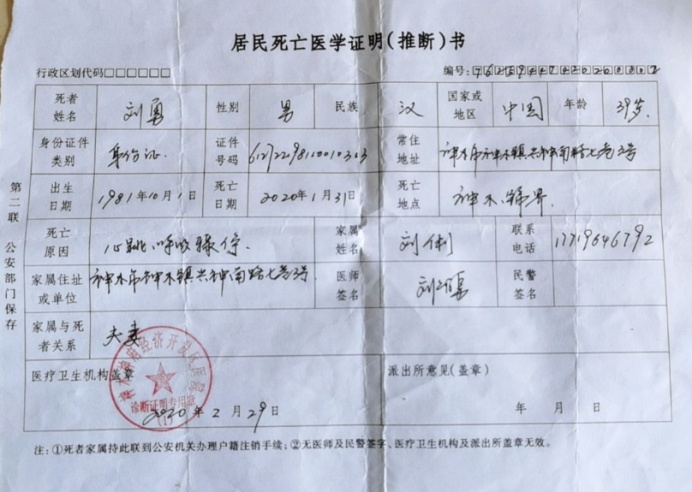 居民死亡医学证明(推断)书
行政区划代码□□□□□□ 编号:
死者姓名 刘勇 性别 男 民族 汉 国家或地区 中国 年龄 39岁
身份证件类别 身份证 证件号码 常住地址 神木市神木镇 南路七巷3号
出生日期 1981年10月1日 死亡日期 2020年1月31日 死亡地点 神木
死亡原因 心跳呼吸骤停 家属姓名 刘 联系电话 17719646792
家属住址或单位 神木市神木镇 南路七巷3号 医师签名 刘 民警签名
家属与死者关系 夫妻
医疗卫生机构盖章 派出所意见(盖章)
经济开发区医院
诊断证明专用章
(1)
2020年2月29日 年 月 日
注:①死者家属持此联到公安机关办理户籍注销手续;②无医师及民警签字、医疗卫生机构及派出所盖章无效。
第二联 公安部门保存